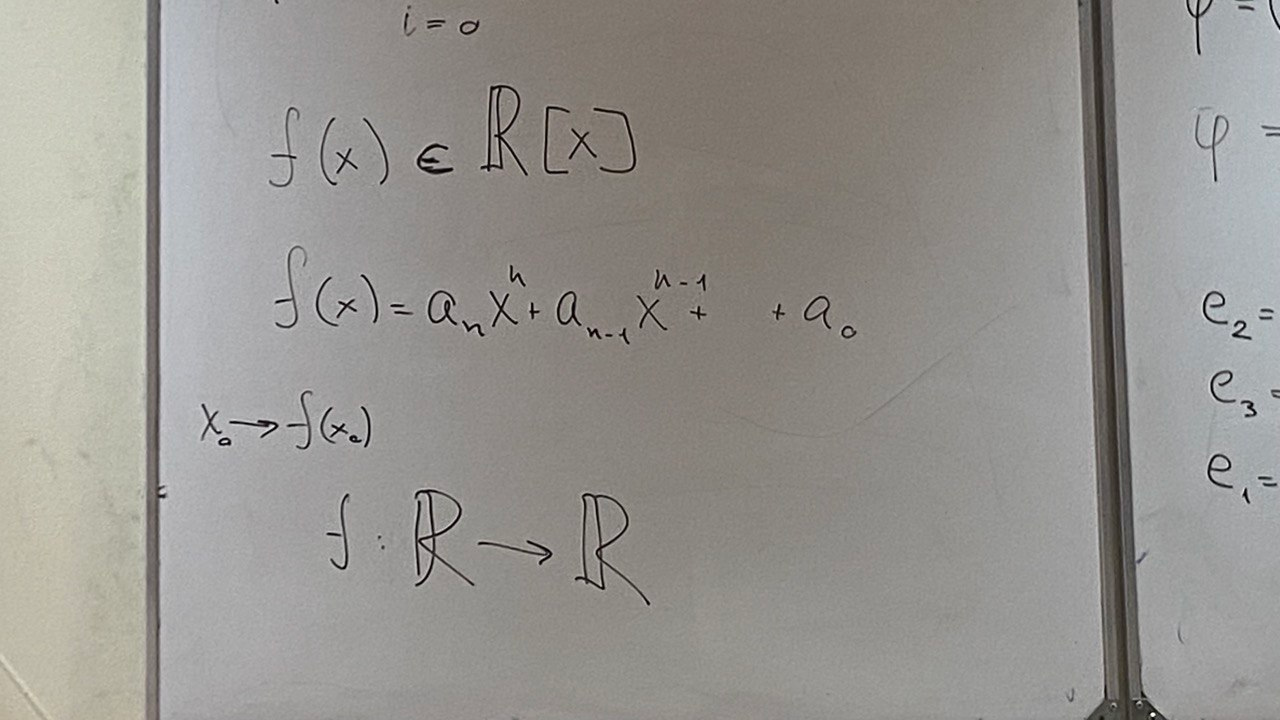 i = 0
f(x) ∈ ℝ[x]
f(x) = aₙxⁿ + aₙ₋₁xⁿ⁻¹ +   + a₀
x₀ → f(x₀)
f : ℝ → ℝ
φ = (
φ =
e₂ =
e₃ =
e₁ =